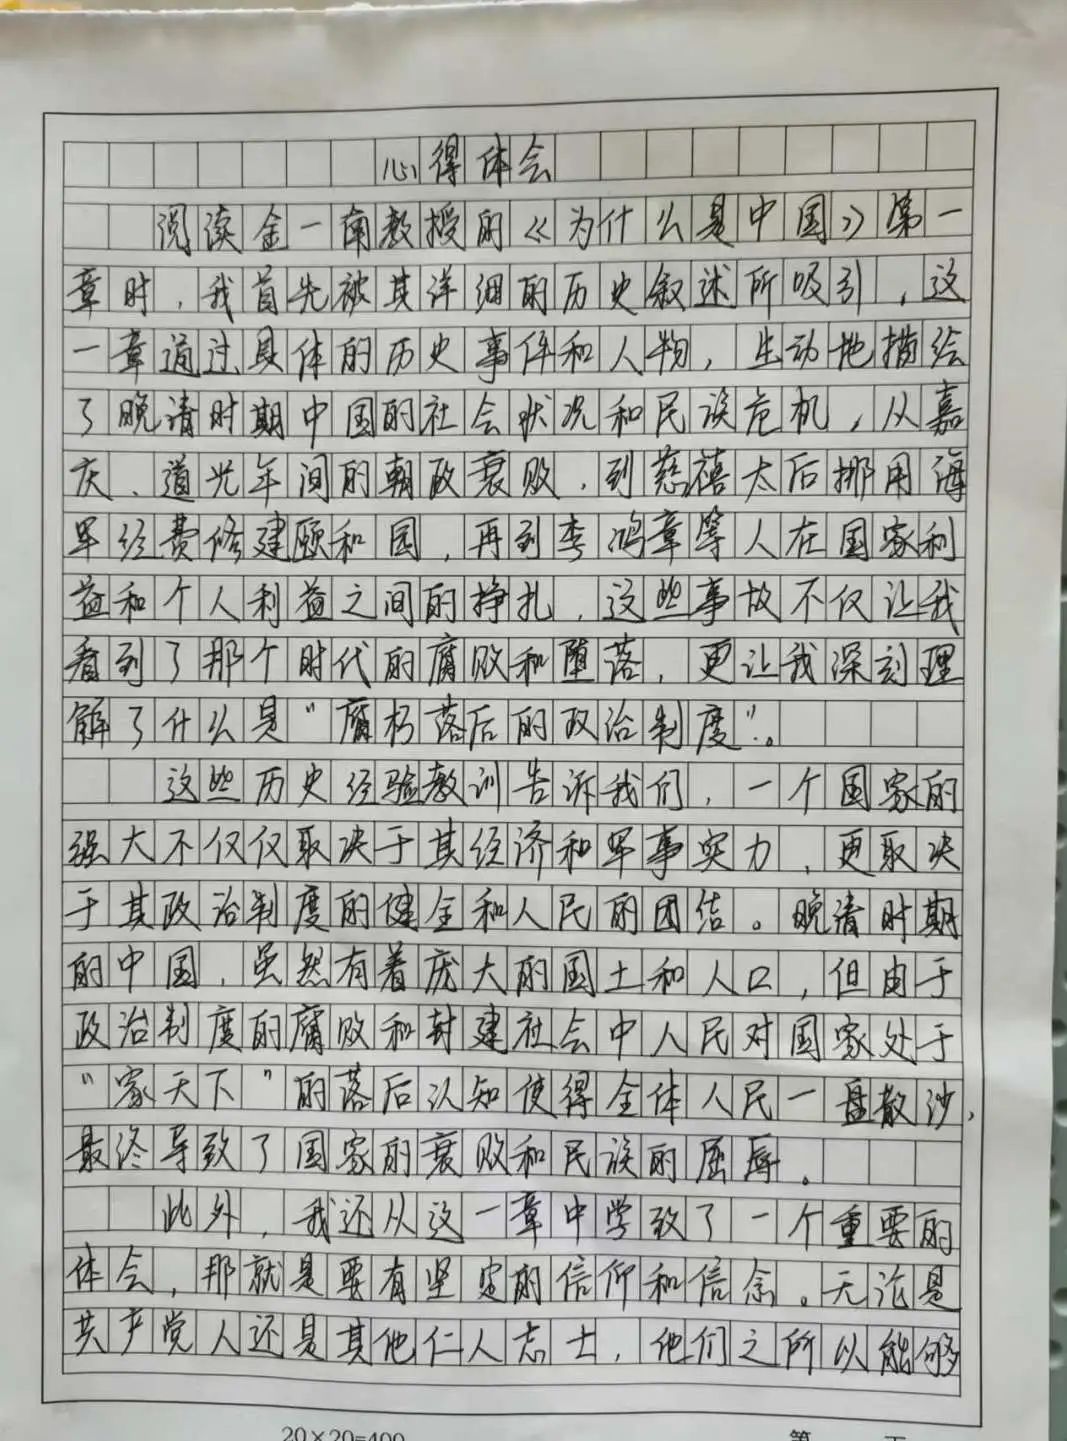 心得体会
阅读金一南教授的《为什么是中国》第一
章时，我首先被其详细的历史叙述所吸引，这
一章通过具体的历史事件和人物，生动地描绘
了晚清时期中国的社会状况和民族危机，从嘉
庆、道光年间的朝政衰败，到慈禧太后挪用海
军经费修建颐和园，再到李鸿章等人在国家利
益和个人利益之间的挣扎，这些事故不仅让我
看到了那个时代的腐败和堕落，更让我深刻理
解了什么是“腐朽落后的政治制度”。
这些历史经验教训告诉我们，一个国家的
强大不仅仅取决于其经济和军事实力，更取决
于其政治制度的健全和人民的团结。晚清时期
的中国，虽然有着庞大的国土和人口，但由于
政治制度的腐败和封建社会中人民对国家处于
“家天下”的落后认知使得全体人民一盘散沙，
最终导致了国家的衰败和民族的屈辱。
此外，我还从这一章中学致了一个重要的
体会，那就是要有坚定的信仰和信念。无论是
共产党人还是其他仁人志士，他们之所以能够
20×20=400